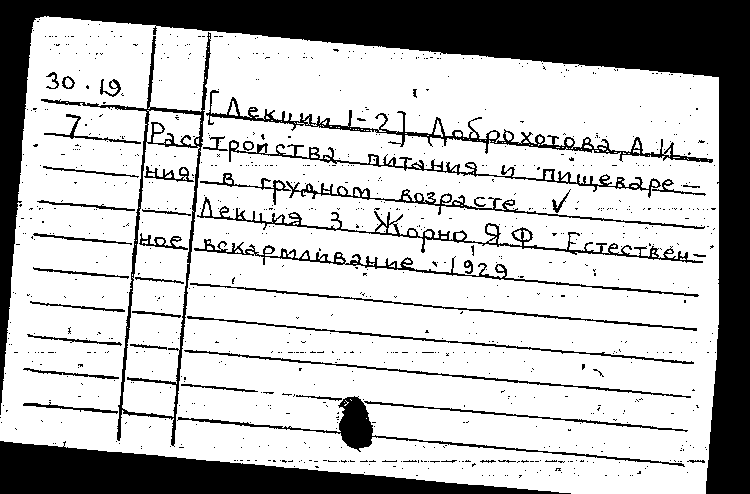 30.19
7
[Лекции 1-2] Доброхотова, А.И.
Расстройства питания и пищеваре-
ния в грудном возрасте ✓
Лекция 3. Жорно, Я.Ф. Естествен-
ное вскармливание. 1929.